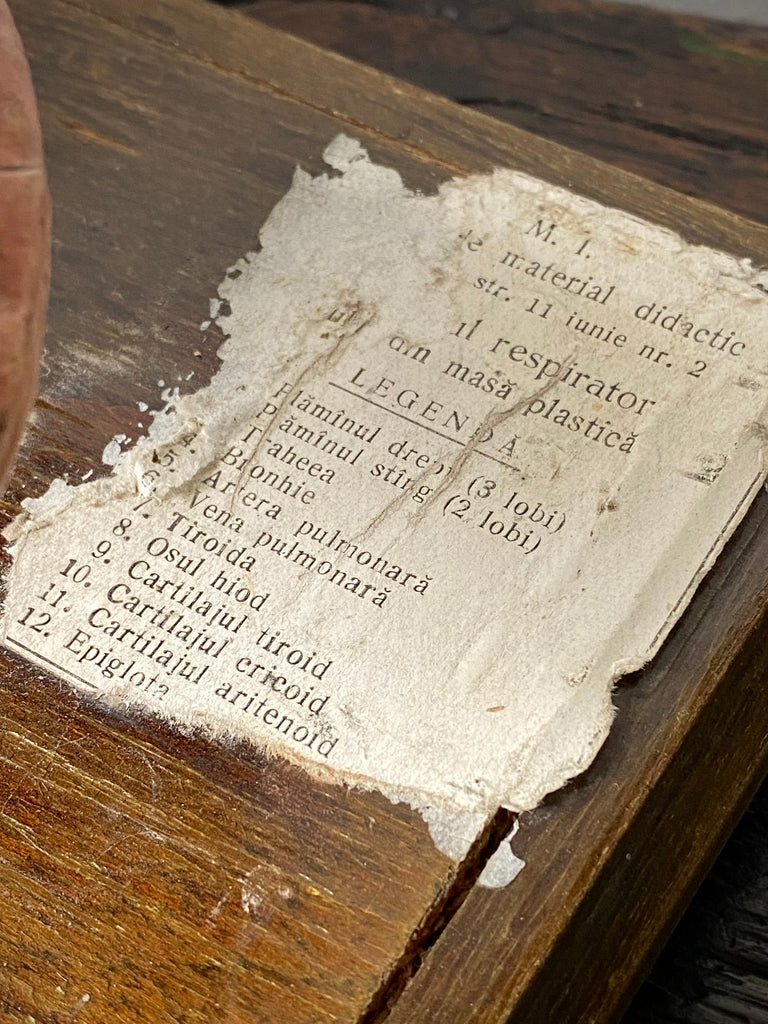 M. I.
de material didactic
str. 11 iunie nr. 2
respirator
din masă plastică
LEGENDĂ
Plămînul drept (3 lobi)
Plămînul stîng (2 lobi)
Traheea
4. Bronhie
5. Artera pulmonară
6. Vena pulmonară
7. Tiroida
8. Osul hiod
9. Cartilajul tiroid
10. Cartilajul cricoid
11. Cartilajul aritenoid
12. Epiglota